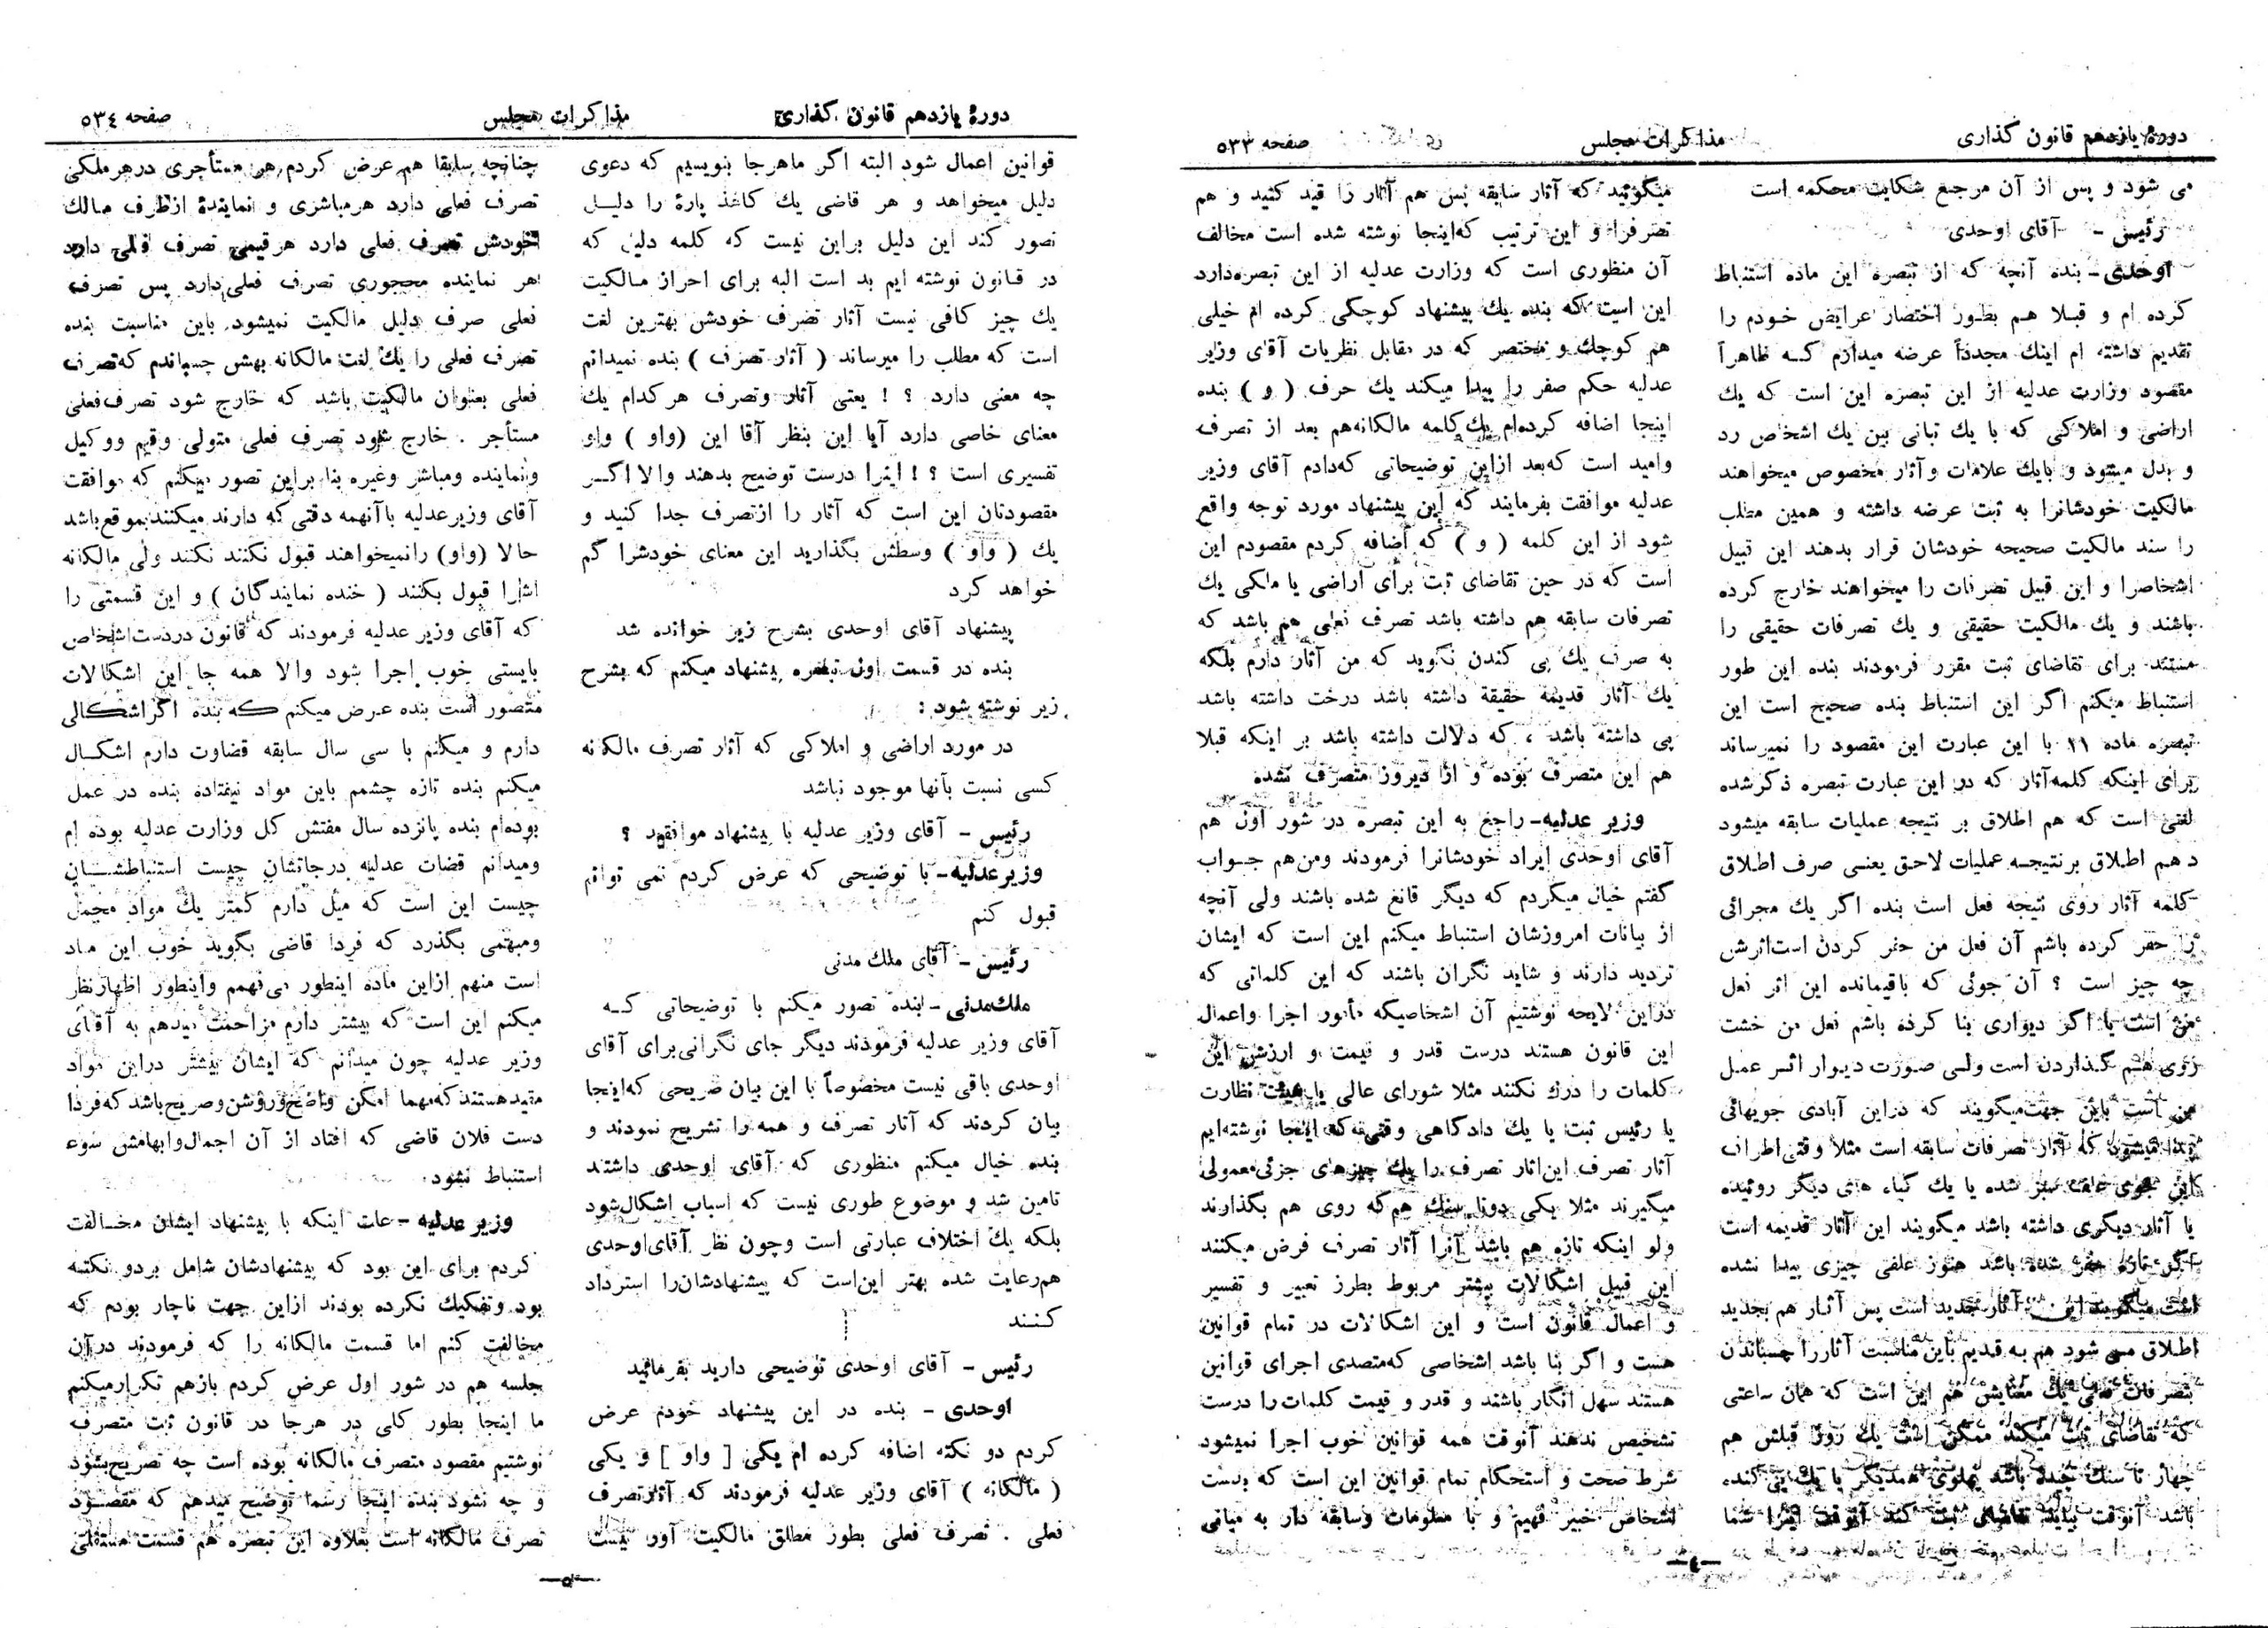 دورهٔ یازدهم قانون گذاری
مذاکرات مجلس
صفحه ۵۳۳
می شود و پس از آن مرجع شکایت محکمه است
رئیس - آقای اوحدی
اوحدی - بنده آنچه که از تبصره این ماده استنباط
کرده ام و قبلا هم بطور اختصار عرایض خودم را
تقدیم داشته ام اینك مجدداً عرضه میدارم که ظاهراً
مقصود وزارت عدلیه از این تبصره این است که یك
اراضی و املاکی که با یك تبانی بین یك اشخاص رد
و بدل میشود و بایك علامات وآثار مخصوص میخواهند
مالکیت خودشانرا به ثبت عرضه داشته و همین مطلب
را سند مالکیت صحیحه خودشان قرار بدهند این قبیل
اشخاصرا و این قبیل تصرفات را میخواهند خارج کرده
باشند و یك مالکیت حقیقی و یك تصرفات حقیقی را
مستند برای تقاضای ثبت مقرر فرمودند بنده این طور
استنباط میکنم اگر این استنباط بنده صحیح است این
تبصره ماده ۱۱ با این عبارت این مقصود را نمیرساند
برای اینکه کلمه آثار که در این عبارت تبصره ذکرشده
لغتی است که هم اطلاق بر نتیجه عملیات سابقه میشود
د هم اطلاق برنتیجه عملیات لاحق یعنی صرف اطلاق
کلمه آثار روی نتیجه فعل است بنده اگر یك مجرائی
را حفر کرده باشم آن فعل من حفر کردن است اثرش
چه چیز است ؟ آن جوئی که باقیمانده این اثر فعل
من است یا اگر دیواری بنا کرده باشم فعل من خشت
روی هم گذاردن است ولی صورت دیوار اثر عمل
من است باین جهت میگویند که دراین آبادی جویهائی
پیدا میشود که آثار تصرفات سابقه است مثلا وقتی اطراف
این جوی علف سبز شده یا یك گیاه های دیگر روئیده
یا آثار دیگری داشته باشد میگویند این آثار قدیمه است
اگر تازه حفر شده باشد هنوز علفی چیزی پیدا نشده
است میگویند این آثار جدید است پس آثار هم بجدید
اطلاق می شود هم به قدیم باین مناسبت آثار را چسباندن
بتصرفات فعلی یك معنایش هم این است که همان ساعتی
که تقاضای ثبت میکند ممکن است یك روز قبلش هم
چهار تا سنك چیده باشد پهلوی همدیگر یا یك پی کنده
باشد آنوقت بیاید تقاضای ثبت کند آنوقت اینرا شما
میگوئید که آثار سابقه پس هم آثار را قید کنید و هم
تصرفرا و این ترتیب که اینجا نوشته شده است مخالف
آن منظوری است که وزارت عدلیه از این تبصره دارد
این است که بنده یك پیشنهاد کوچکی کرده ام خیلی
هم کوچك و مختصر که در مقابل نظریات آقای وزیر
عدلیه حکم صفر را پیدا میکند یك حرف ( و ) بنده
اینجا اضافه کرده ام یك کلمه مالکانه هم بعد از تصرف
وامید است که بعد ازاین توضیحاتی که دادم آقای وزیر
عدلیه موافقت بفرمایند که این پیشنهاد مورد توجه واقع
شود از این کلمه ( و ) که اضافه کردم مقصودم این
است که در حین تقاضای ثبت برای اراضی یا ملکی یك
تصرفات سابقه هم داشته باشد تصرف فعلی هم باشد که
به صرف یك پی کندن نگوید که من آثار دارم بلکه
یك آثار قدیمه حقیقة داشته باشد درخت داشته باشد
پی داشته باشد ، که دلالت داشته باشد بر اینکه قبلا
هم این متصرف بوده و از دیروز متصرف نشده
وزیر عدلیه - راجع به این تبصره در شور اول هم
آقای اوحدی ایراد خودشانرا فرمودند ومن هم جواب
گفتم خیال میکردم که دیگر قانع شده باشند ولی آنچه
از بیانات امروزشان استنباط میکنم این است که ایشان
تردید دارند و شاید نگران باشند که این کلماتی که
دراین لایحه نوشتیم آن اشخاصیکه مأمور اجرا واعمال
این قانون هستند درست قدر و قیمت و ارزش این
کلمات را درك نکنند مثلا شورای عالی یا هیئت نظارت
یا رئیس ثبت یا یك دادگاهی وقتی که اینجا نوشته ایم
آثار تصرف این اثار تصرف را یك چیزهای جزئی معمولی
میگیرند مثلا یکی دوتا سنك هم که روی هم بگذارند
ولو اینکه تازه هم باشد آنرا آثار تصرف فرض میکنند
این قبیل اشکالات بیشتر مربوط بطرز تعبیر و تفسیر
و اعمال قانون است و این اشکالات در تمام قوانین
هست و اگر بنا باشد اشخاصی که متصدی اجرای قوانین
هستند سهل انگار باشند و قدر و قیمت کلمات را درست
تشخیص ندهند آنوقت همه قوانین خوب اجرا نمیشود
شرط صحت و استحکام تمام قوانین این است که بدست
اشخاص خبیر فهیم و با معلومات وسابقه دار به مبانی
-٤-
دورهٔ یازدهم قانون گذاری
مذاکرات مجلس
صفحه ٥٣٤
قوانین اعمال شود البته اگر ماهرجا بنویسیم که دعوی
دلیل میخواهد و هر قاضی یك کاغذ پارهٔ را دلیل
تصور کند این دلیل براین نیست که کلمه دلیل که
در قانون نوشته ایم بد است البه برای احراز مالکیت
یك چیز کافی نیست آثار تصرف خودش بهترین لغت
است که مطلب را میرساند ( آثار تصرف ) بنده نمیدانم
چه معنی دارد ؟ ! یعنی آثار وتصرف هر کدام یك
معنای خاصی دارد آیا این بنظر آقا این (واو ) واو
تفسیری است ؟ ! اینرا درست توضیح بدهند والا اگر
مقصودتان این است که آثار را ازتصرف جدا کنید و
یك ( واو ) وسطش بگذارید این معنای خودشرا گم
خواهد کرد
پیشنهاد آقای اوحدی بشرح زیر خوانده شد
بنده در قسمت اول تبصره پیشنهاد میکنم که بشرح
زیر نوشته شود :
در مورد اراضی و املاکی که آثار تصرف مالکانه
کسی نسبت بآنها موجود نباشد
رئیس - آقای وزیر عدلیه با پیشنهاد موافقید ؟
وزیر عدلیه - با توضیحی که عرض کردم نمی توانم
قبول کنم
رئیس - آقای ملك مدنی
ملك مدنی - بنده تصور میکنم با توضیحاتی که
آقای وزیر عدلیه فرمودند دیگر جای نگرانی برای آقای
اوحدی باقی نیست مخصوصاً با این بیان صریحی که اینجا
بیان کردند که آثار تصرف و همه را تشریح نمودند و
بنده خیال میکنم منظوری که آقای اوحدی داشتند
تامین شد و موضوع طوری نیست که اسباب اشکال شود
بلکه یك اختلاف عبارتی است وچون نظر آقای اوحدی
هم رعایت شده بهتر این است که پیشنهادشان را استرداد
کنند
رئیس - آقای اوحدی توضیحی دارید بفرمائید
اوحدی - بنده در این پیشنهاد خودم عرض
کردم دو نکته اضافه کرده ام یکی [ واو ] و یکی
( مالکانه ) آقای وزیر عدلیه فرمودند که آثار تصرف
فعلی . تصرف فعلی بطور مطلق مالکیت آور نیست
چنانچه سابقا هم عرض کردم هر مستأجری در هر ملکی
تصرف فعلی دارد هر مباشری و نمایندهٔ ازطرف مالك
خودش تصرف فعلی دارد هر قیمی تصرف فعلی دارد
هر نماینده محجوری تصرف فعلی دارد پس تصرف
فعلی صرف دلیل مالکیت نمیشود باین مناسبت بنده
تصرف فعلی را یك لغت مالکانه بهش چسباندم که تصرف
فعلی بعنوان مالکیت باشد که خارج شود تصرف فعلی
مستأجر . خارج شود تصرف فعلی متولی وقیم ووکیل
ونماینده ومباشر وغیره بنا براین تصور میکنم که موافقت
آقای وزیر عدلیه با آنهمه دقتی که دارند میکنند بموقع باشد
حالا (واو) را نمیخواهند قبول نکنند نکنند ولی مالکانه
اش را قبول بکنند ( خنده نمایندگان ) و این قسمتی را
که آقای وزیر عدلیه فرمودند که قانون دردست اشخاص
بایستی خوب اجرا شود والا همه جا این اشکالات
متصور است بنده عرض میکنم که بنده اگر اشکالی
دارم و میکنم با سی سال سابقه قضاوت دارم اشکال
میکنم بنده تازه چشمم باین مواد نیفتاده بنده در عمل
بوده ام بنده پانزده سال مفتش کل وزارت عدلیه بوده ام
ومیدانم قضات عدلیه درجاتشان چیست استنباطشان
چیست این است که میل دارم کمتر یك مواد مجمل
ومبهمی بگذرد که فردا قاضی بگوید خوب این ماد
است منهم ازاین ماده اینطور می فهمم واینطور اظهار نظر
میکنم این است که بیشتر دارم مزاحمت میدهم به آقای
وزیر عدلیه چون میدانم که ایشان بیشتر دراین مواد
مقید هستند که مهما امکن واضح و روشن و صریح باشد که فردا
دست فلان قاضی که افتاد از آن اجمال وابهامش سوء
استنباط نشود
وزیر عدلیه - علت اینکه با پیشنهاد ایشان مخالفت
کردم برای این بود که پیشنهادشان شامل بردو نکته
بود وتفکیك نکرده بودند ازاین جهت ناچار بودم که
مخالفت کنم اما قسمت مالکانه را که فرمودند درآن
جلسه هم در شور اول عرض کردم بازهم تکرار میکنم
ما اینجا بطور کلی در هرجا در قانون ثبت متصرف
نوشتیم مقصود متصرف مالکانه بوده است چه تصریح بشود
و چه نشود بنده اینجا رسما توضیح میدهم که مقصود
تصرف مالکانه است بعلاوه این تبصره هم قسمت مستقلی
-٥-